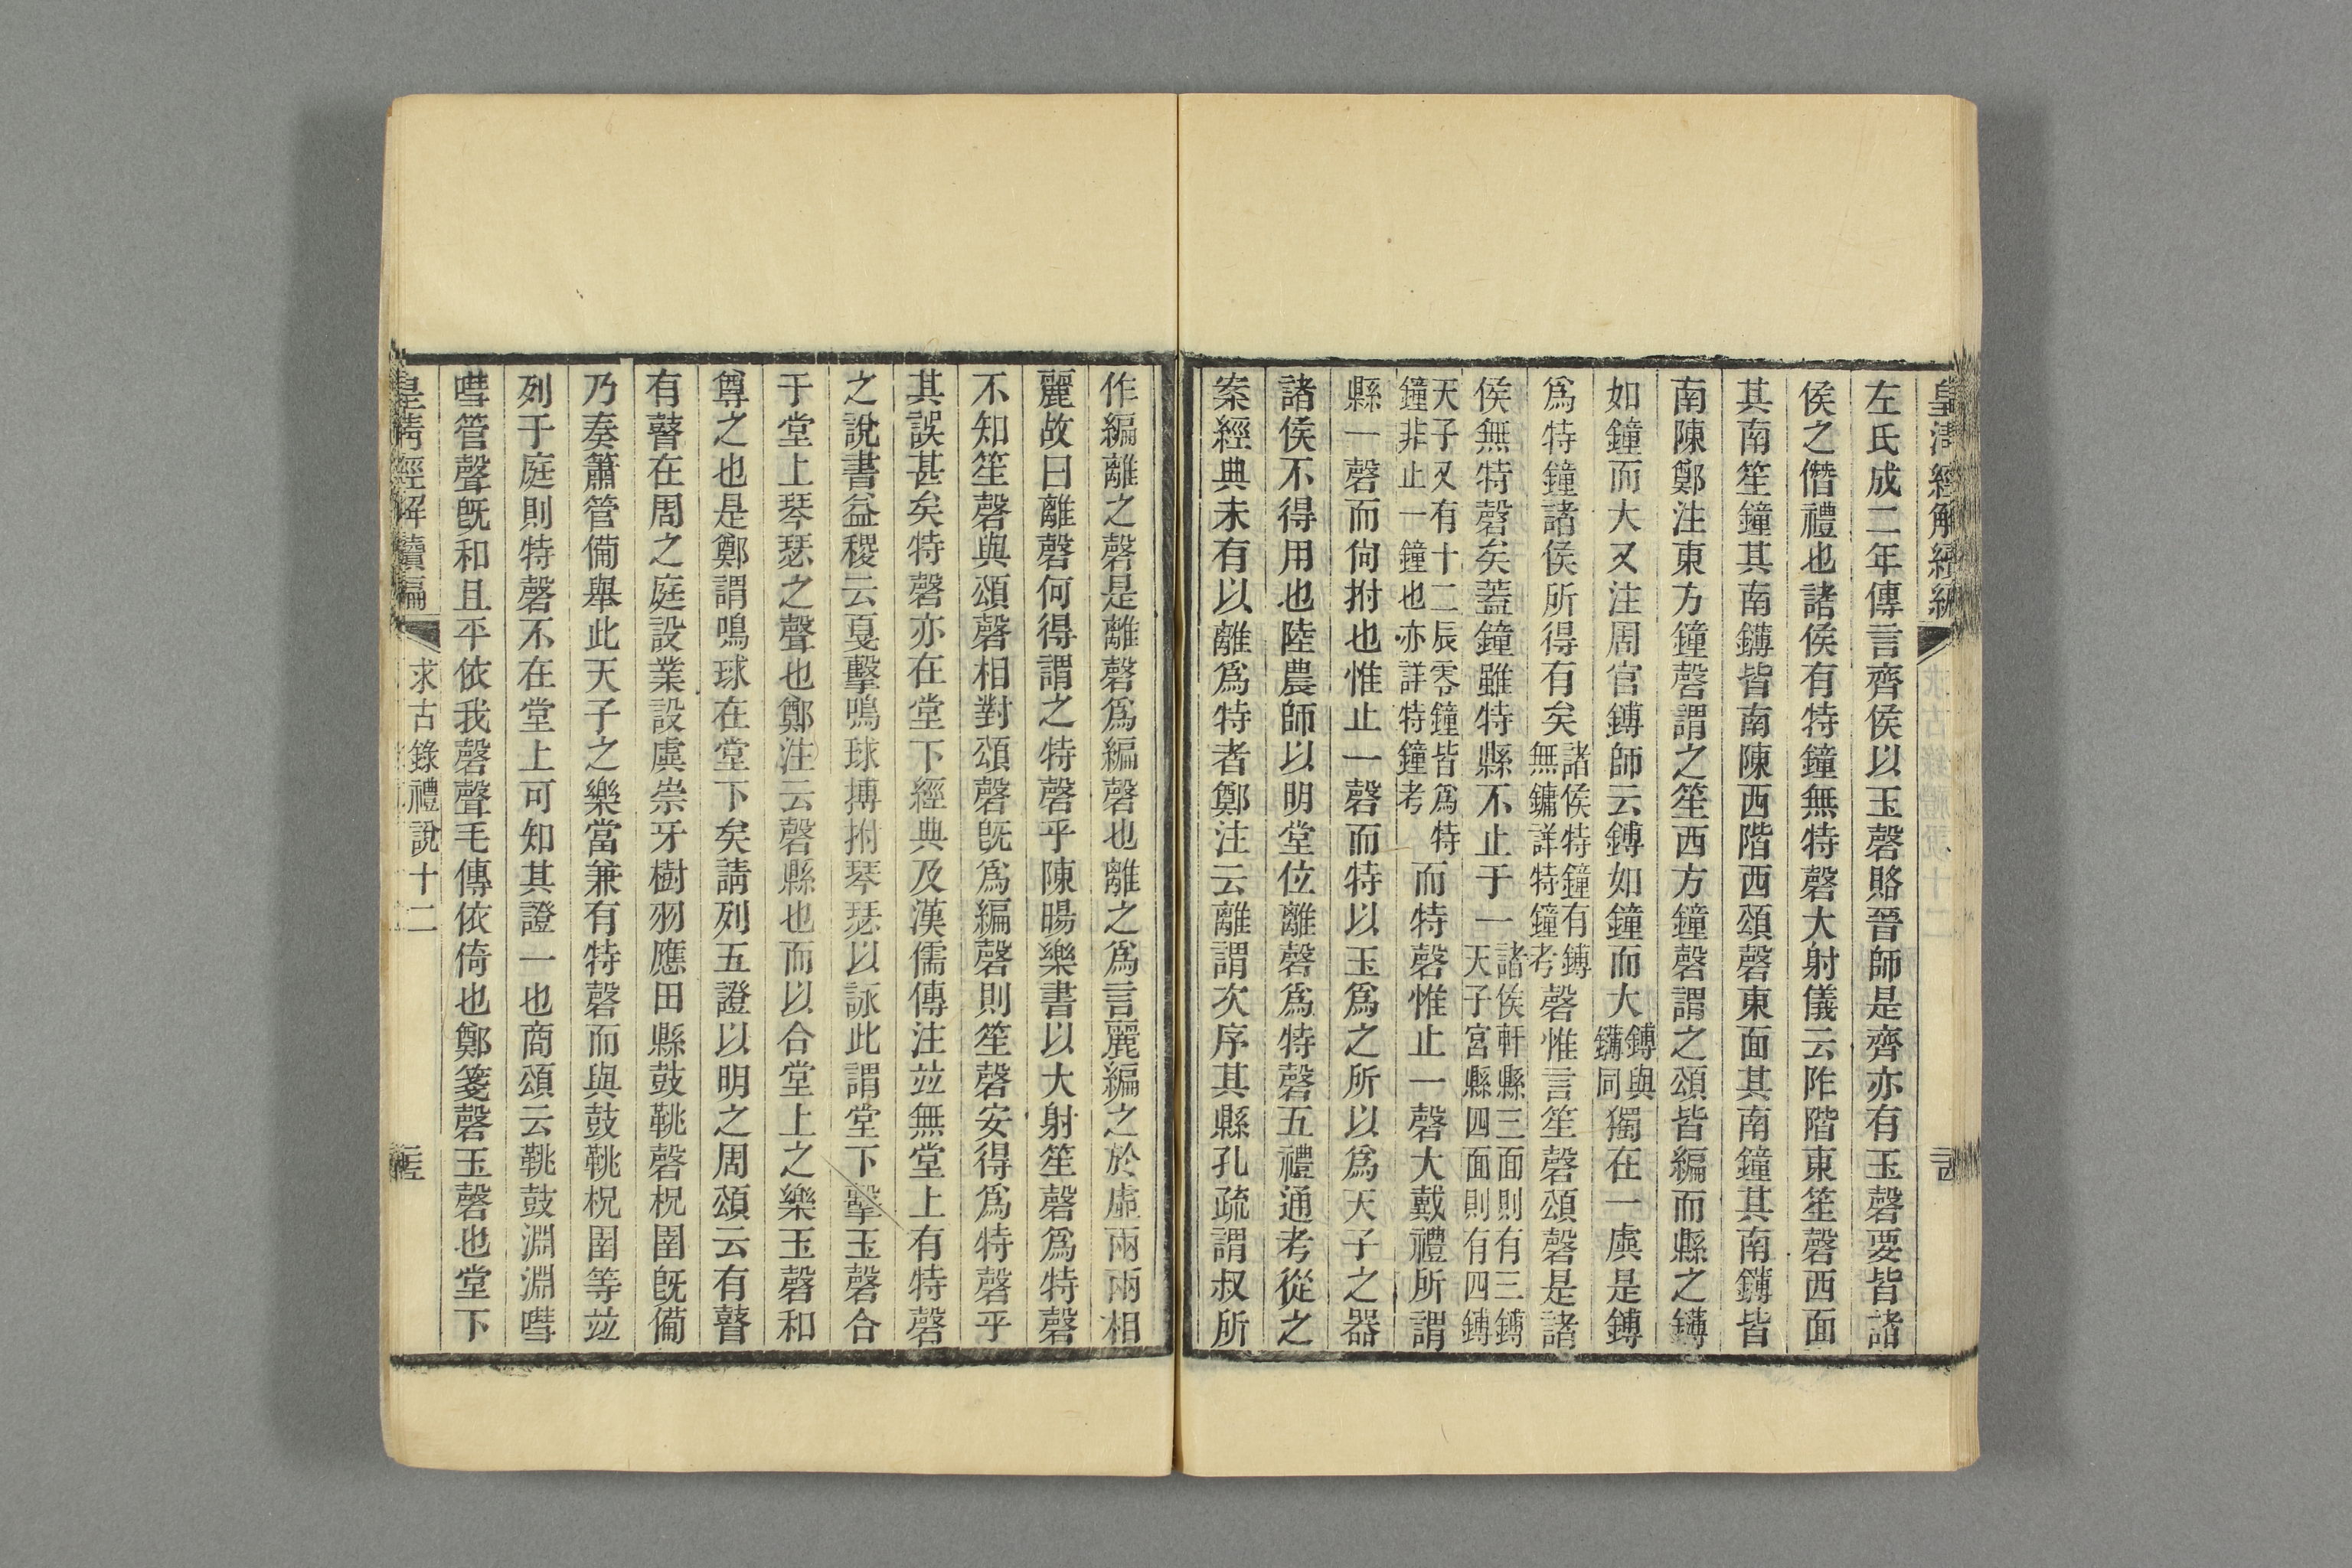 皇清經解續編
左氏成二年傳言齊侯以玉磬賂晉師是齊亦有玉磬要皆諸
侯之僭禮也諸侯有特鐘無特磬大射儀云阼階東笙磬西面
其南笙鐘其南鑮皆南陳西階西頌磬東面其南鐘其南鑮皆
南陳鄭注東方鐘磬謂之笙西方鐘磬謂之頌皆編而縣之鑮
如鐘而大又注周官鎛師云鎛如鐘而大鎛與鑮同獨在一虡是鎛
爲特鐘諸侯所得有矣諸侯特鐘有鎛無鏞詳特鐘考磬惟言笙磬頌磬是諸
侯無特磬矣蓋鐘雖特縣不止于一諸侯軒縣三面則有三鎛天子宮縣四面則有四鎛
天子又有十二辰零鐘皆爲特鐘非止一鐘也亦詳特鐘考而特磬惟止一磬大戴禮所謂
縣一磬而尙拊也惟止一磬而特以玉爲之所以爲天子之器
諸侯不得用也陸農師以明堂位離磬爲特磬五禮通考從之
案經典未有以離爲特者鄭注云離謂次序其縣孔疏謂叔所
作編離之磬是離磬爲編磬也離之爲言麗編之於虡兩兩相
麗故曰離磬何得謂之特磬乎陳暘樂書以大射笙磬爲特磬
不知笙磬與頌磬相對頌磬旣爲編磬則笙磬安得爲特磬乎
其誤甚矣特磬亦在堂下經典及漢儒傳注竝無堂上有特磬
之說書益稷云戛擊鳴球搏拊琴瑟以詠此謂堂下擊玉磬合
于堂上琴瑟之聲也鄭注云磬縣也而以合堂上之樂玉磬和
尊之也是鄭謂鳴球在堂下矣請列五證以明之周頌云有瞽
有瞽在周之庭設業設虡崇牙樹羽應田縣鼓鞉磬柷圉旣備
乃奏簫管備舉此天子之樂當兼有特磬而與鼓鞉柷圉等竝
列于庭則特磬不在堂上可知其證一也商頌云鞉鼓淵淵嘒
嘒管聲旣和且平依我磬聲毛傳依倚也鄭箋磬玉磬也堂下
皇清經解續編
求古錄禮說十二